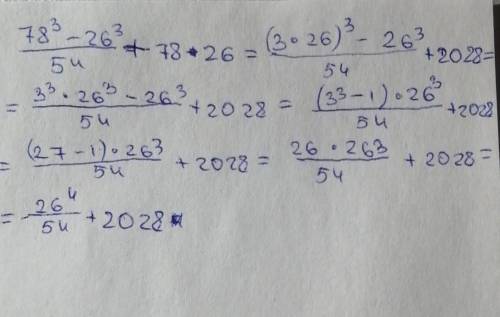 (78³ − 26³)/54 + 78 · 26 = ((3 · 26)³ − 26³)/54 + 2028 =
= (3³ · 26³ − 26³)/54 + 2028 = ((3³ − 1) · 26³)/54 + 2028
= ((27 − 1) · 26³)/54 + 2028 = (26 · 263)/54 + 2028 =
= 26⁴/54 + 2028